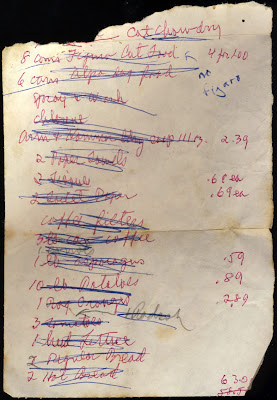 Cat Chow dry
8 cans Figaro Cat Food 4 for 1.00
6 cans alpo dog food no
figaro
Spray & Wash
chlorine
Arm & Hammer 2.39
2 Paper Towels
2 Tissues .68 ea
2 Toilet Paper .69 ea
coffee filters
coffee
1 lb asparagus .59
10 lb Potatoes .89
1 Bag Oranges 2.89
3 tomatoes
1 head lettuce
2 Regular Bread
2 Hot Bread 630